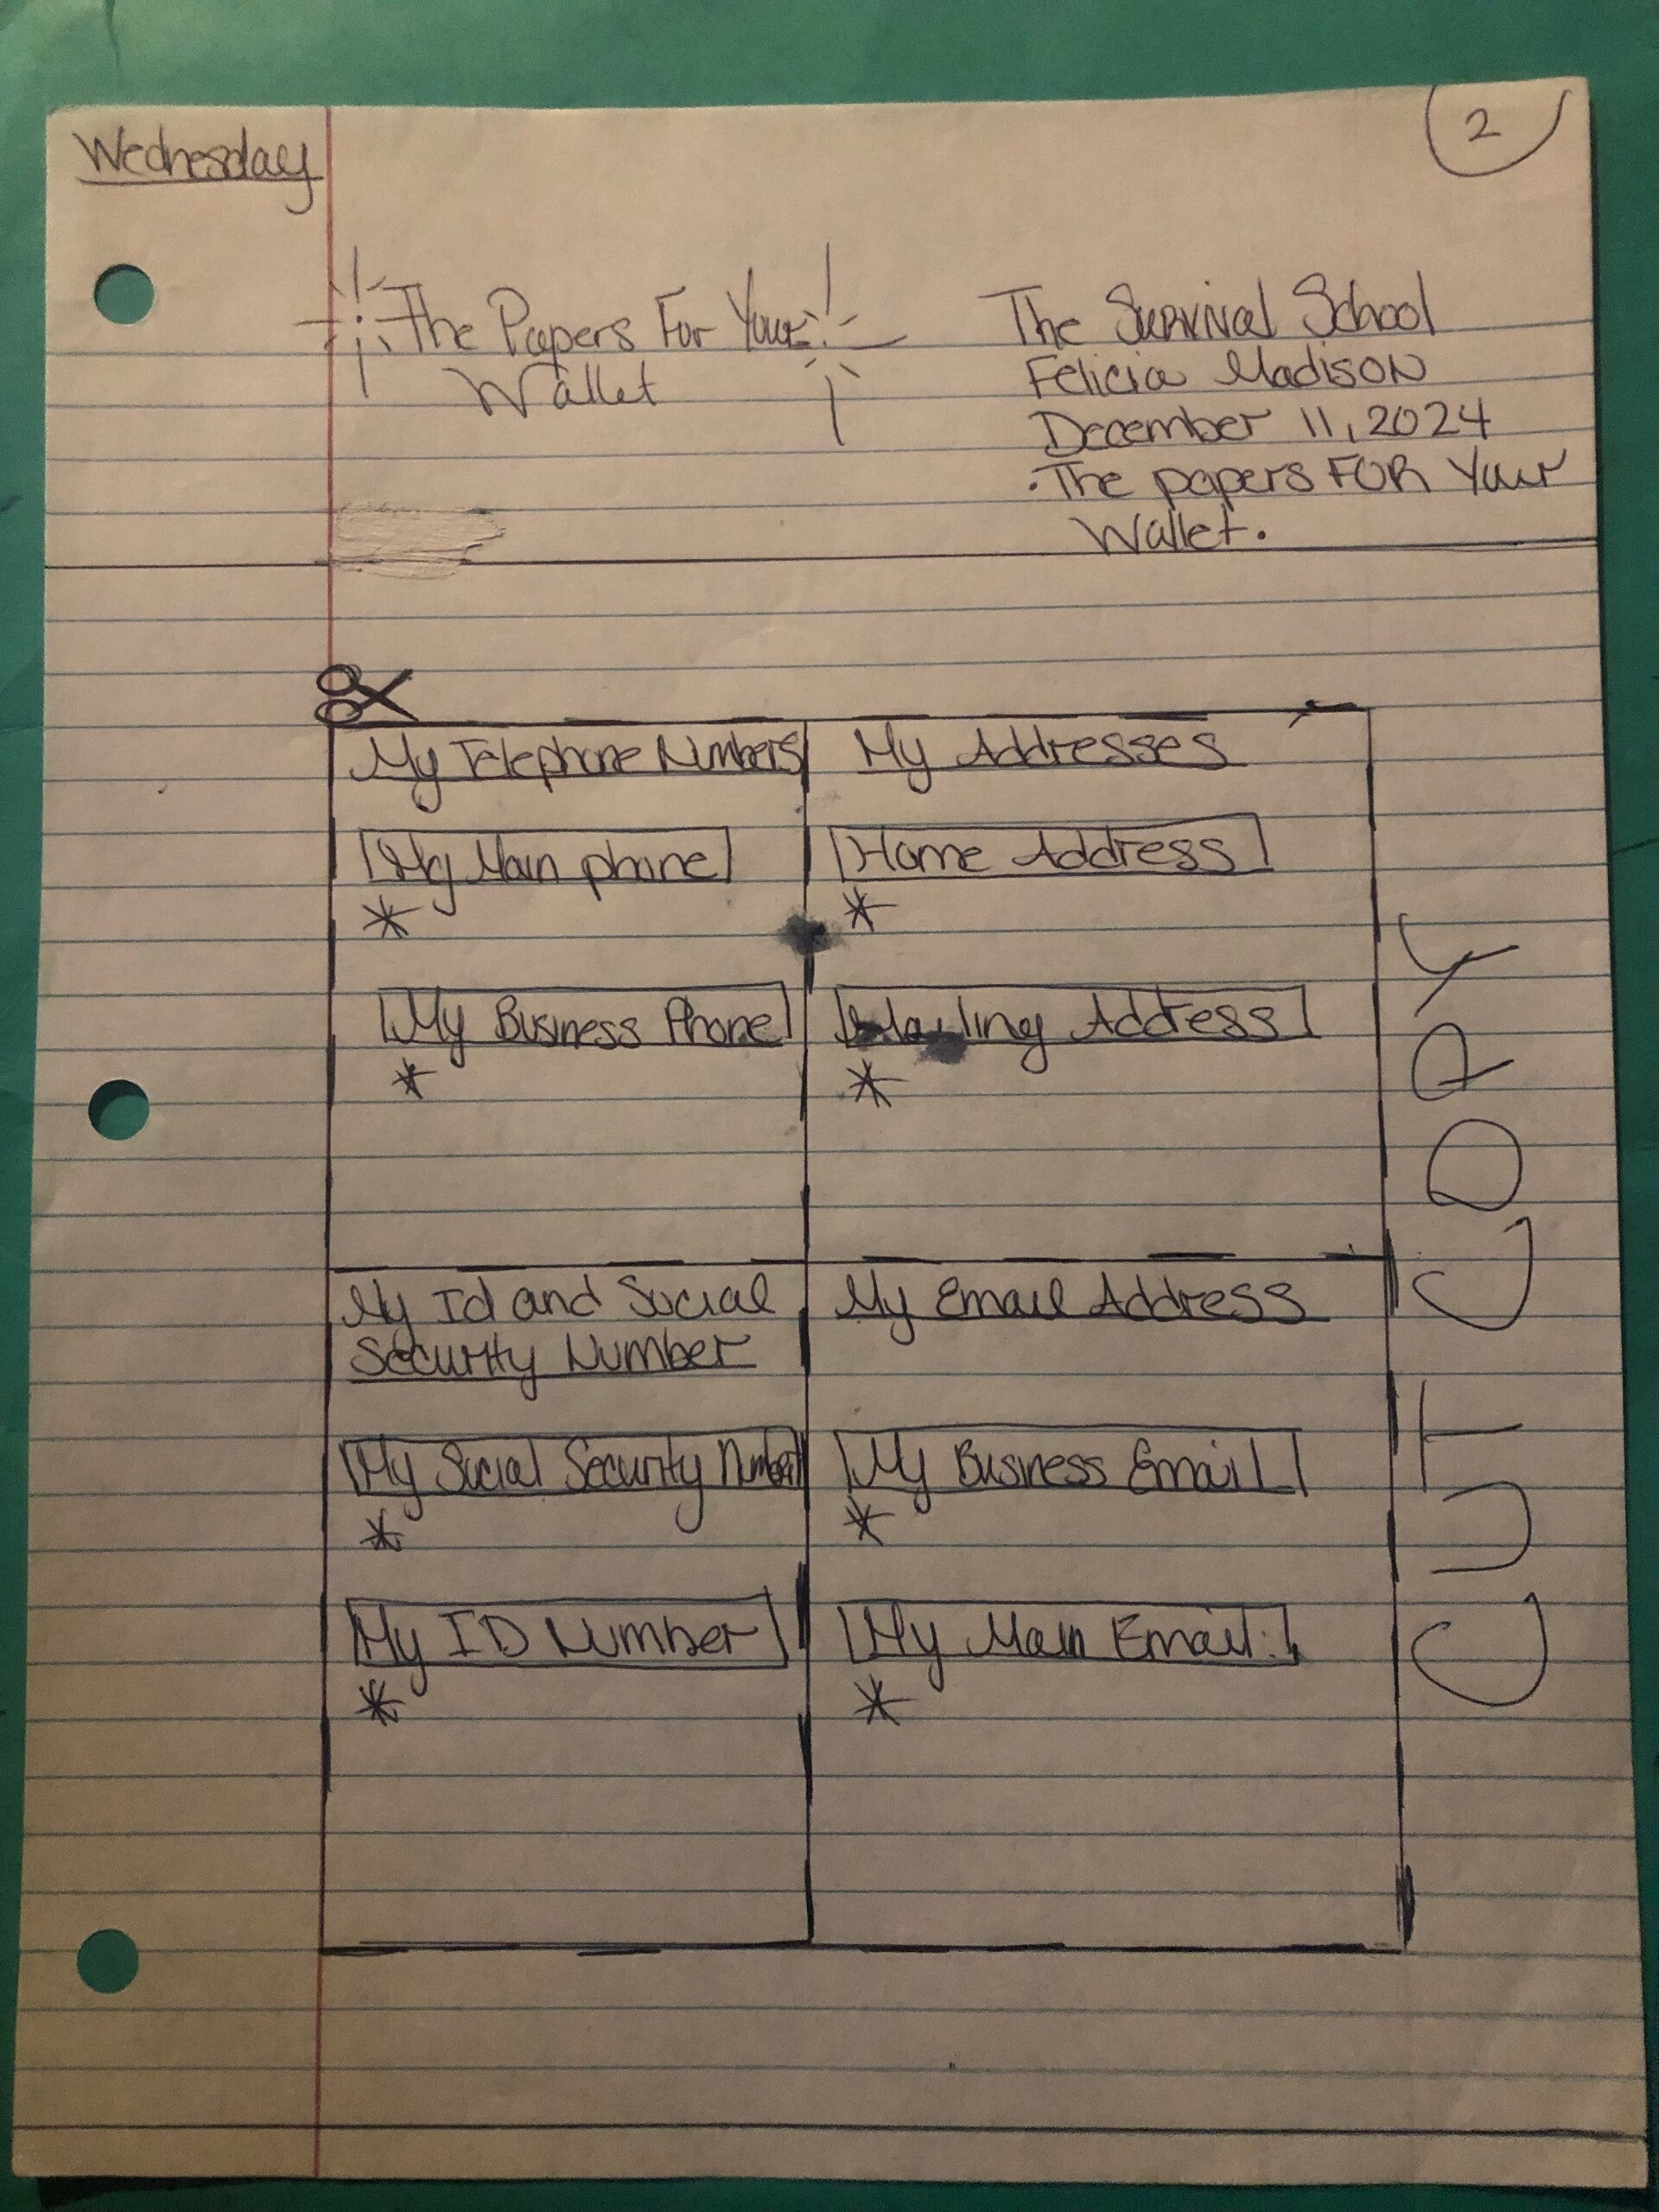 Wednesday
2
The Papers For Your
Wallet
The Survival School
Felicia Madison
December 11, 2024
·The papers FOR Your
Wallet.
My Telephone Numbers
My Main phone
*
My Business Phone
*
My Addresses
Home Address
*
Mailing Address
*
My Id and Social
Security Number
My Social Security Number
*
My ID Number
*
My Email Address
My Business Email
*
My Main Email:
*
CUT COPY